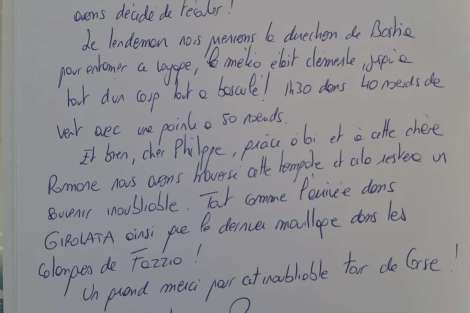 avons décidé de reculer !
Le lendemain nous prenions la direction de Bastia
pour entamer ce voyage, la météo était clémente jusqu'à
tout d'un coup tout a basculé ! 1h30 dans 40 noeuds de
vent avec une pointe a 50 noeuds.
Et bien, cher Philippe, grâce à toi et à cette chère
Romane nous avons traversé cette tempête et cela restera un
souvenir inoubliable. Tout comme l'arrivée dans
GIROLATA ainsi que le dernier mouillage dans les
de Fazzio !
Un grand merci pour cet inoubliable tour de Corse !